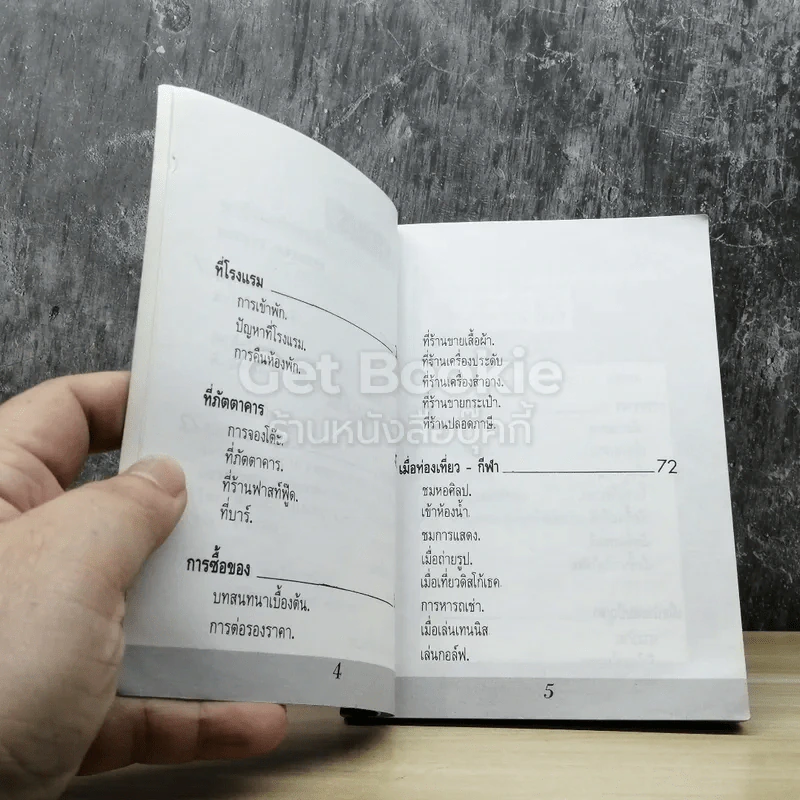 ที่โรงแรม
การเข้าพัก.
ปัญหาที่โรงแรม.
การคืนห้องพัก.
ที่ภัตตาคาร
การจองโต๊ะ.
ที่ภัตตาคาร.
ที่ร้านฟาสท์ฟู๊ด.
ที่บาร์.
การซื้อของ
บทสนทนาเบื้องต้น.
การต่อรองราคา.
4
ที่ร้านขายเสื้อผ้า.
ที่จ้านเครื่องประดับ
ที่ร้านเครื่องสำอาง.
ที่ร้านขายกระเป๋า.
ที่ร้านปลอดภาษี.
เมื่อท่องเที่ยว - กีฬา 72
ชมหอศิลป.
เข้าห้องน้ำ.
ชมการแสดง.
เมื่อถ่ายรูป.
เมื่อเที่ยวดิสโก้เธค.
การหารถเช่า.
เมื่อเล่นเทนนิส
เล่นกอล์ฟ.
5
Get Bookie
ร้านหนังสือบุ๊คกี้